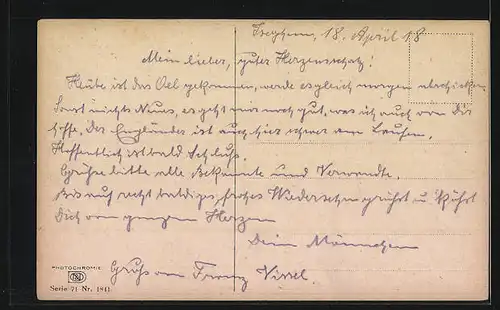 Iseghem, 18. April 18
Mein lieber, guter Herzensschatz!
Heute ist das Oel gekommen, werde es gleich morgen abschicken.
Sonst nichts Neues, es geht mir noch gut, was ich auch von Dir
hoffe. Der Engländer ist auch hier schwer am Laufen.
Hoffentlich ist bald Schluß.
Grüße bitte alle Bekannte und Verwandte.
Bis auf recht baldiges, frohes Wiedersehen grüßt u. küßt
Dich von ganzem Herzen
Dein Männchen
Gruß von Franz
PHOTOCHROMIE
Serie 71 Nr. 1841